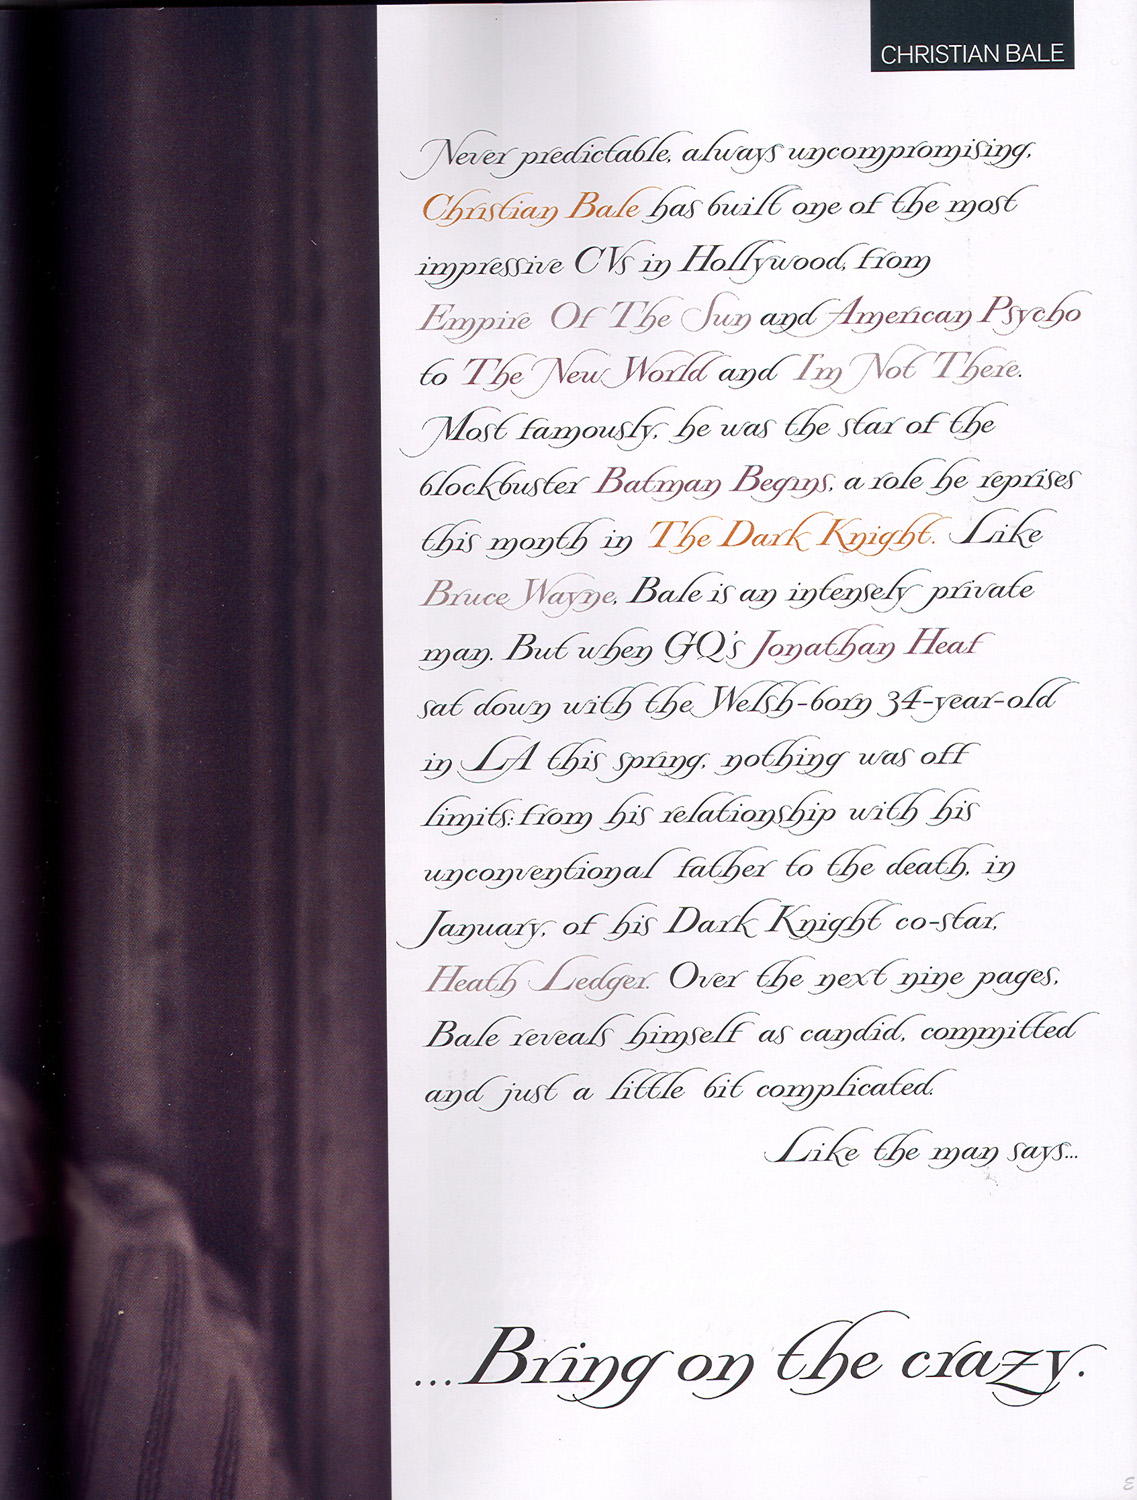 CHRISTIAN BALE
Never predictable, always uncompromising,
Christian Bale has built one of the most
impressive CVs in Hollywood, from
Empire Of The Sun and American Psycho
to The New World and I'm Not There.
Most famously, he was the star of the
blockbuster Batman Begins, a role he reprises
this month in The Dark Knight. Like
Bruce Wayne, Bale is an intensely private
man. But when GQ's Jonathan Heaf
sat down with the Welsh-born 34-year-old
in LA this spring, nothing was off
limits: from his relationship with his
unconventional father to the death, in
January, of his Dark Knight co-star,
Heath Ledger. Over the next nine pages,
Bale reveals himself as candid, committed
and just a little bit complicated.
Like the man says...
...Bring on the crazy.